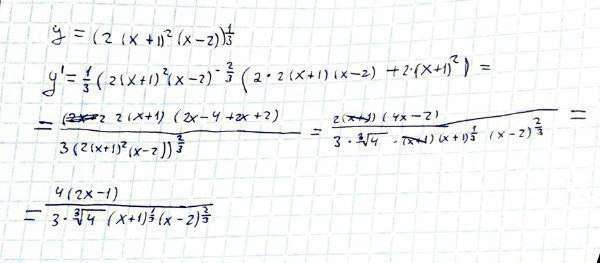 y = (2 (x+1)² (x-2))^{1/3}
y' = 1/3 (2(x+1)²(x-2)^{-2/3} (2·2(x+1)(x-2) + 2·(x+1)²) =
= \frac{2(x+1) (2x-4+2x+2)}{3(2(x+1)²(x-2))^{2/3}} = \frac{2(x+1) (4x-2)}{3·∛4 · (x+1)^{1/3} (x-2)^{2/3}} =
= \frac{4(2x-1)}{3·∛4 (x+1)^{1/3} (x-2)^{2/3}}